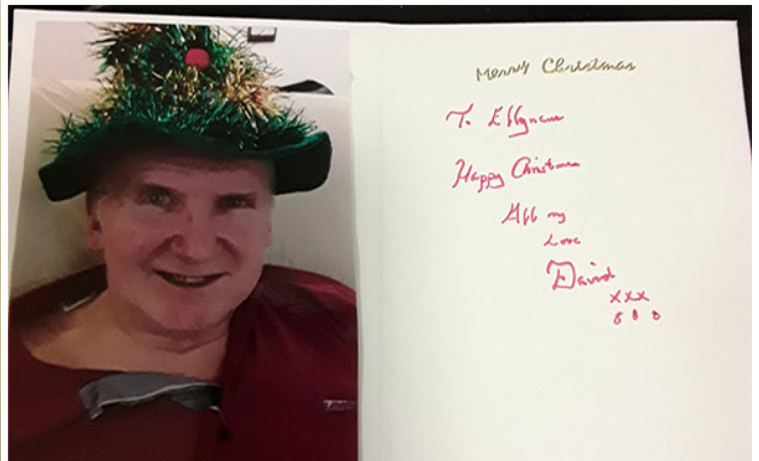 Merry Christmas
To
Happy Christmas
All my
Love
David
xxx